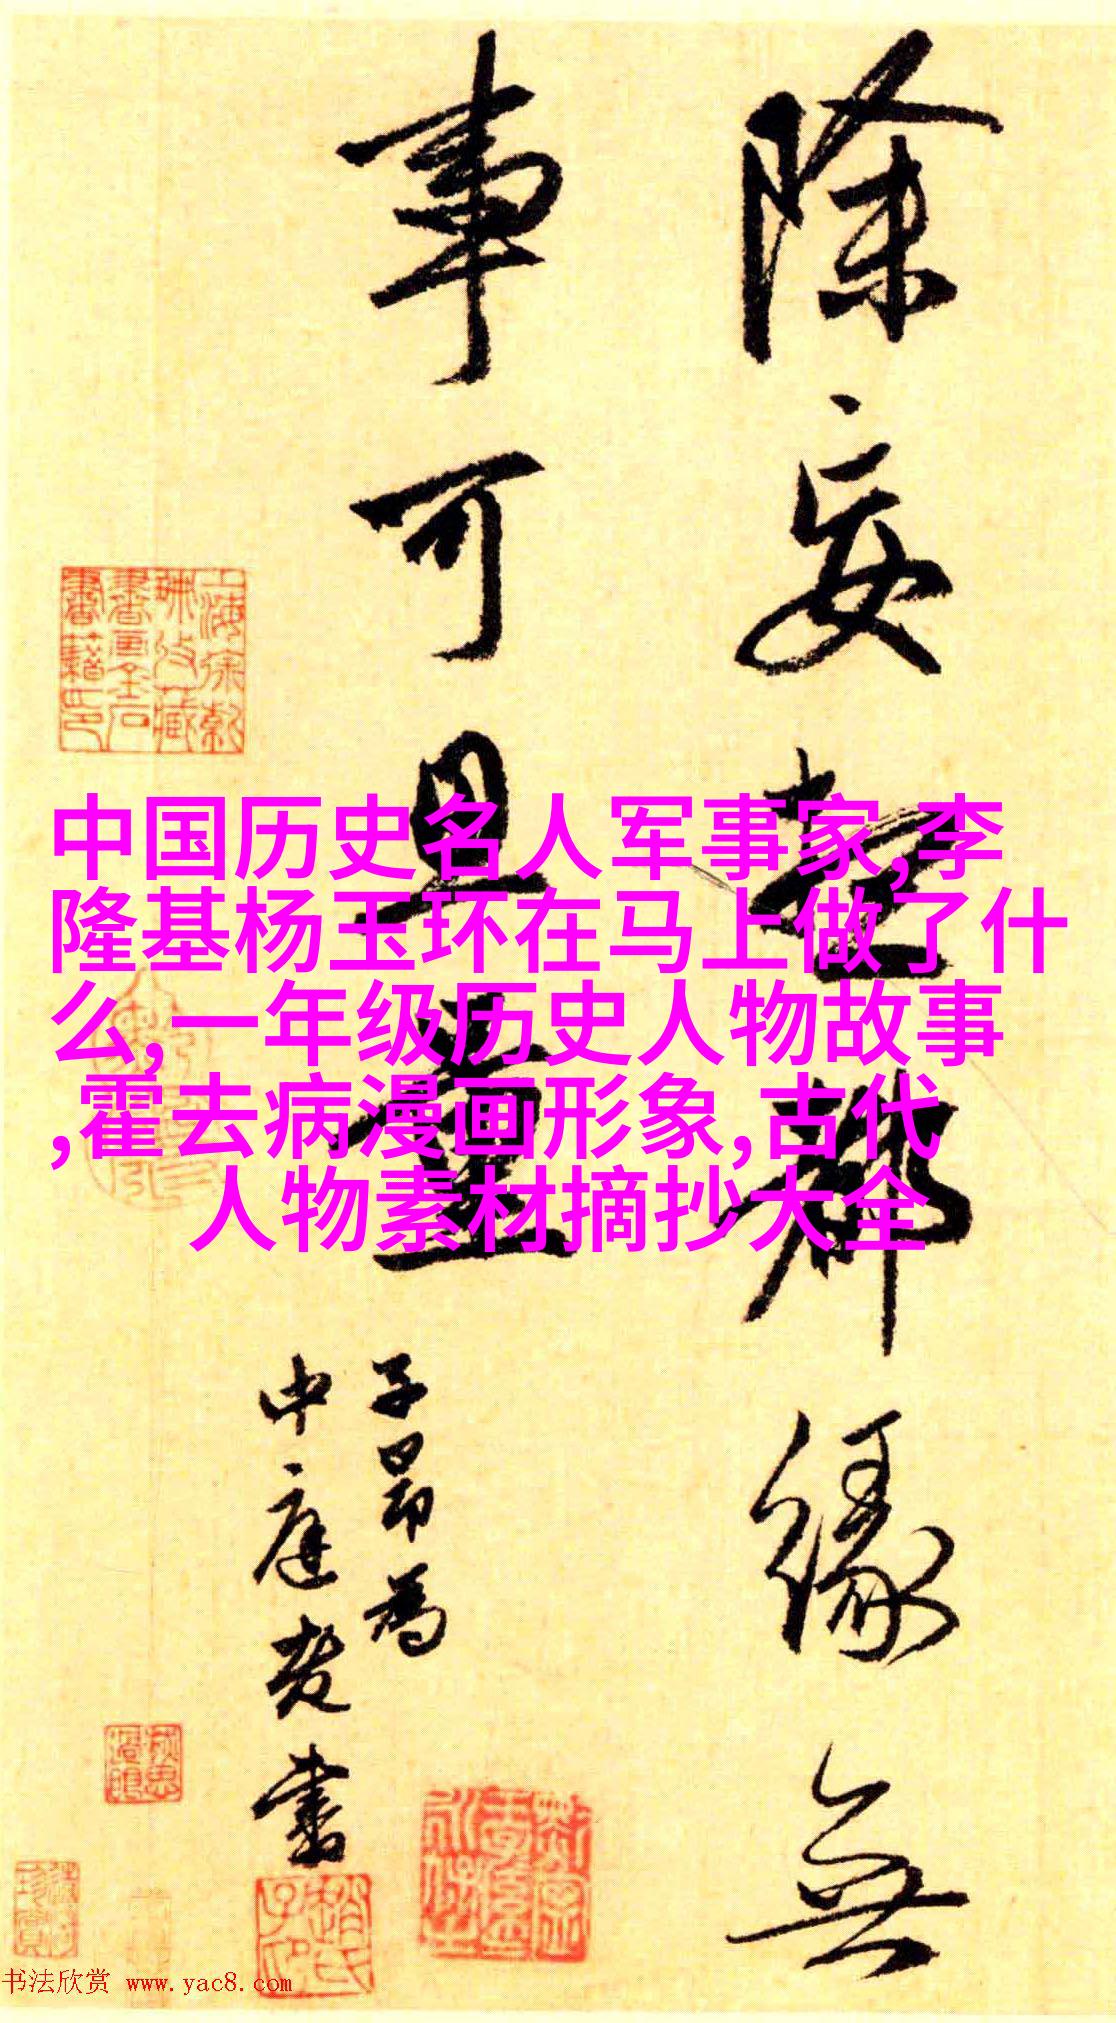 除妄都緣無
事可量
子昂為
中庭老書
趙氏子昂
中国历史名人军事家,李
隆基杨玉环在马上做了什
么,一年级历史人物故事
,霍去病漫画形象,古代
人物素材摘抄大全
书法欣赏 www.yac8.com